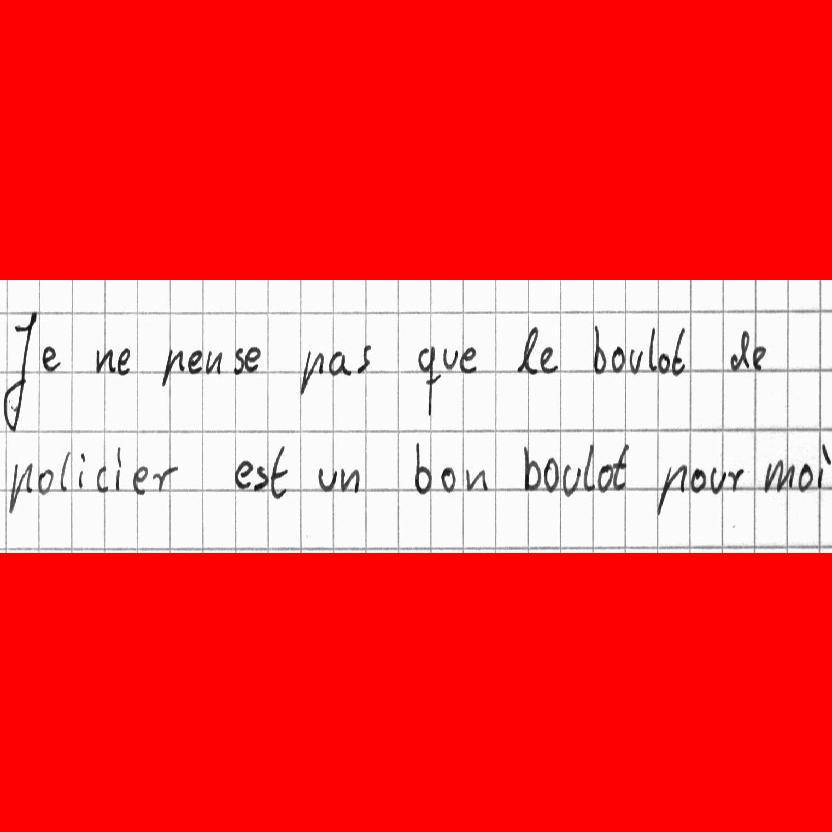 Je ne pense pas que le boulot de
policier est un bon boulot pour moi